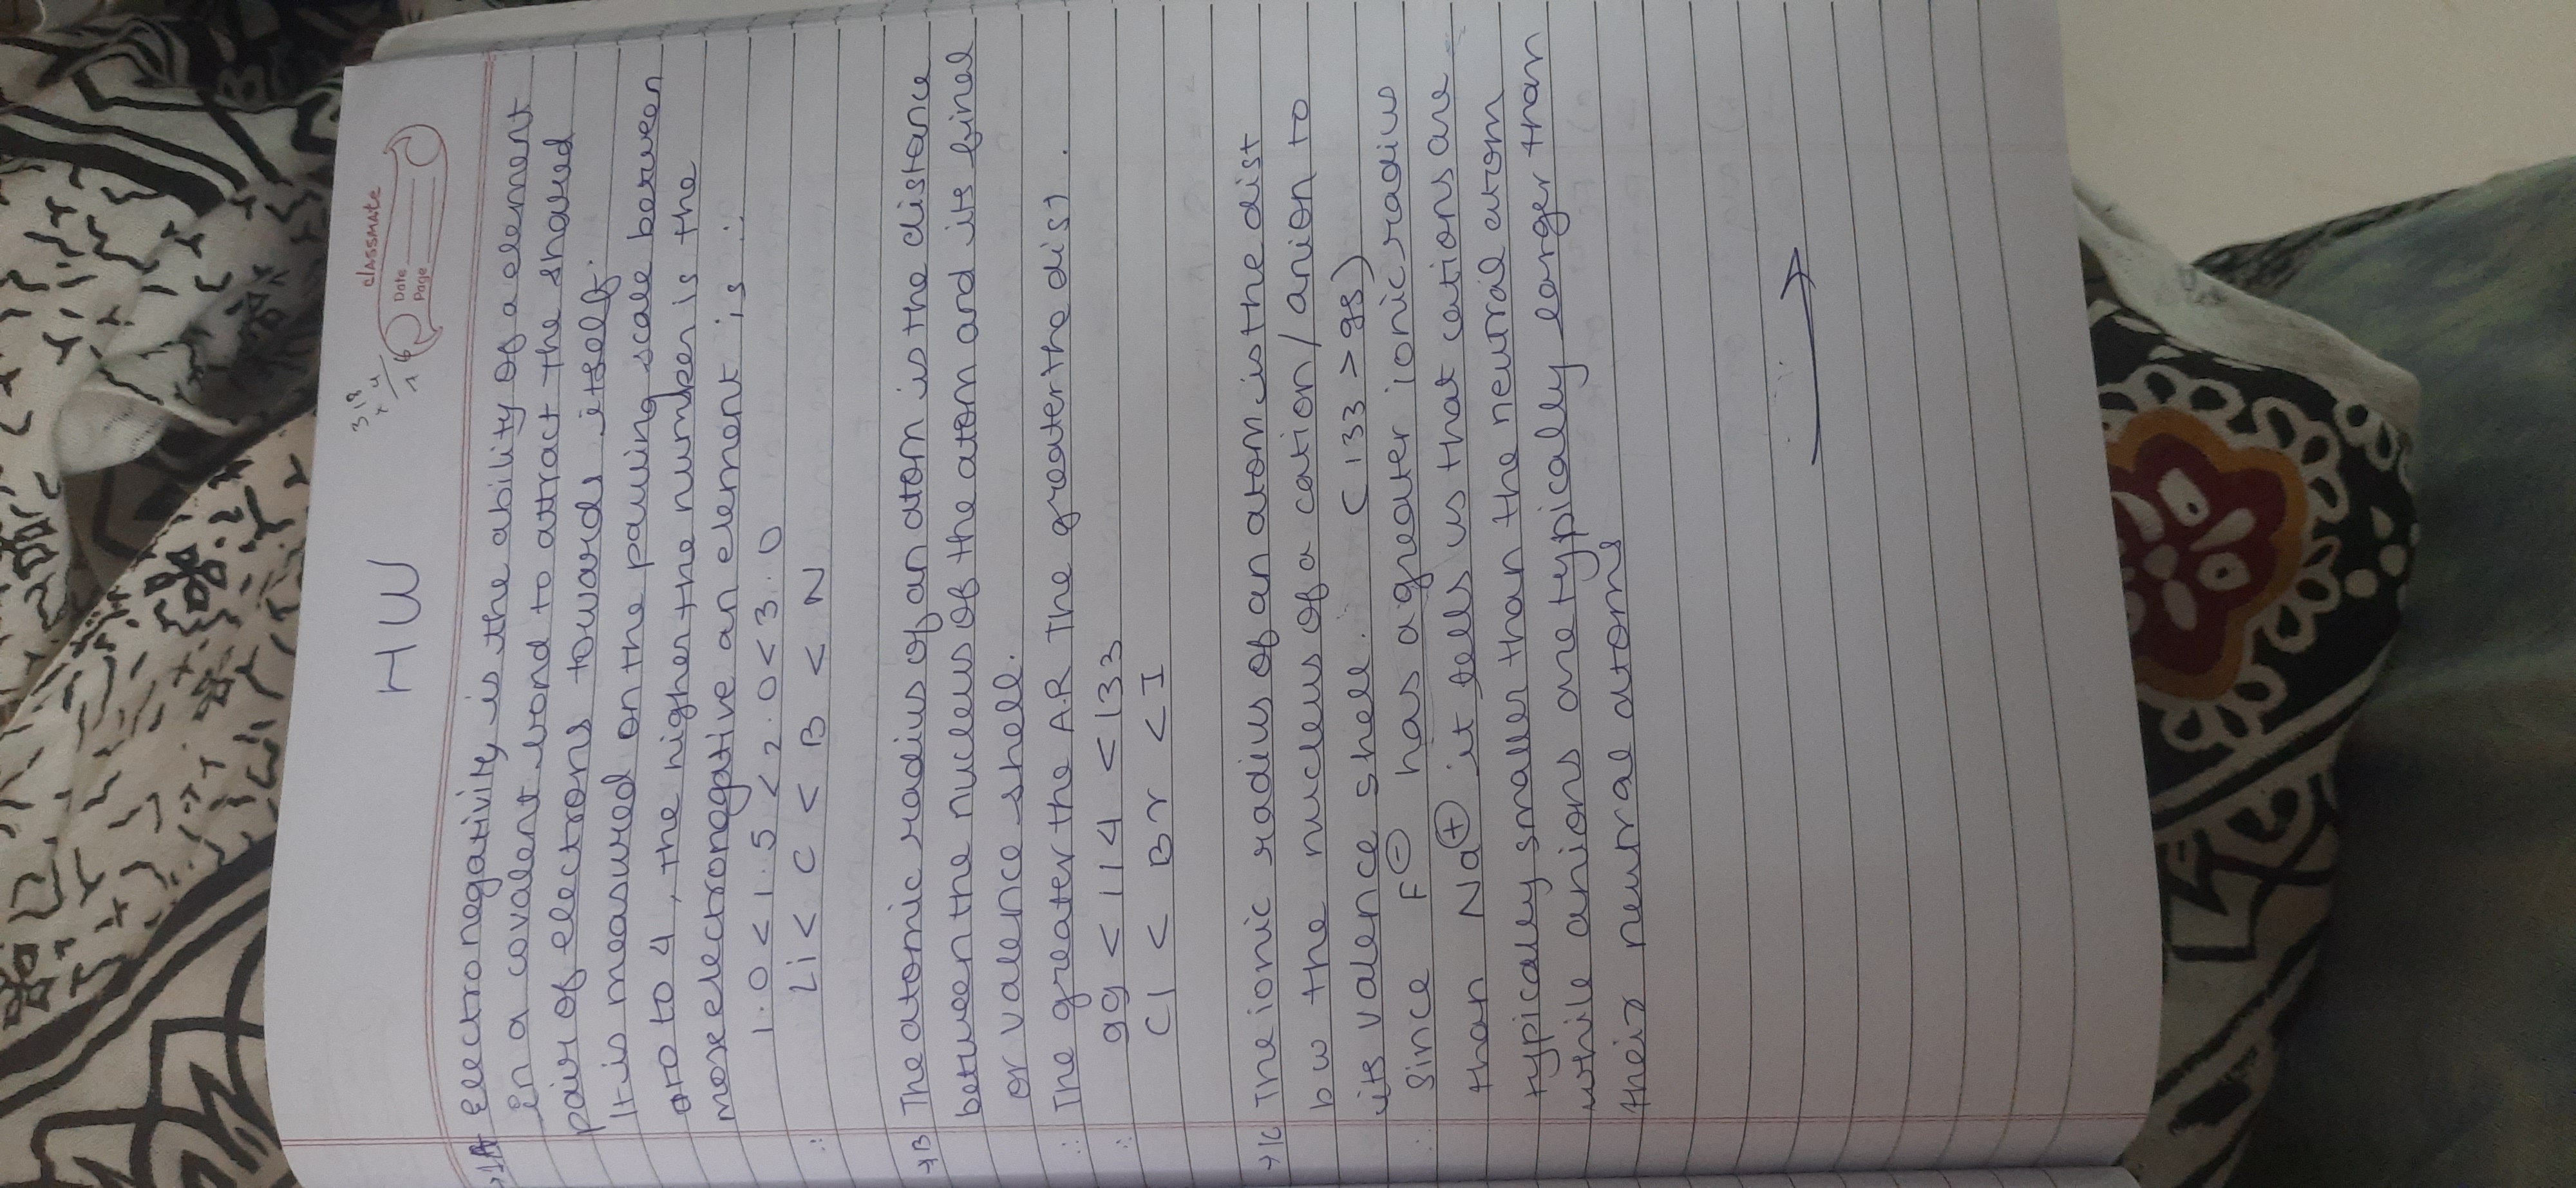 classmate
Date
Page
HW
→1A Electronegativity is the ability of a element
in a covalent bond to attract the shared
pair of electrons towards itself.
It is measured on the pauling scale between
0 to 4, the higher the number is the
more electronegative an element is
1.0 < 1.5 < 2.0 < 3.0
∴ Li < C < B < N
→B The atomic radius of an atom is the distance
between the nucleus of the atom and its final
or valence shell.
∴ The greater the A.R The greater the dist.
∴ 99 < 114 < 133
Cl < Br < I
→1C The ionic radius of an atom is the dist
bw the nucleus of a cation/anion to
its valence shell. (133 > 98)
∴ Since F⊖ has a greater ionic radius
than Na⊕ it tells us that cations are
typically smaller than the neutral atom
while anions are typically larger than
their neutral atoms